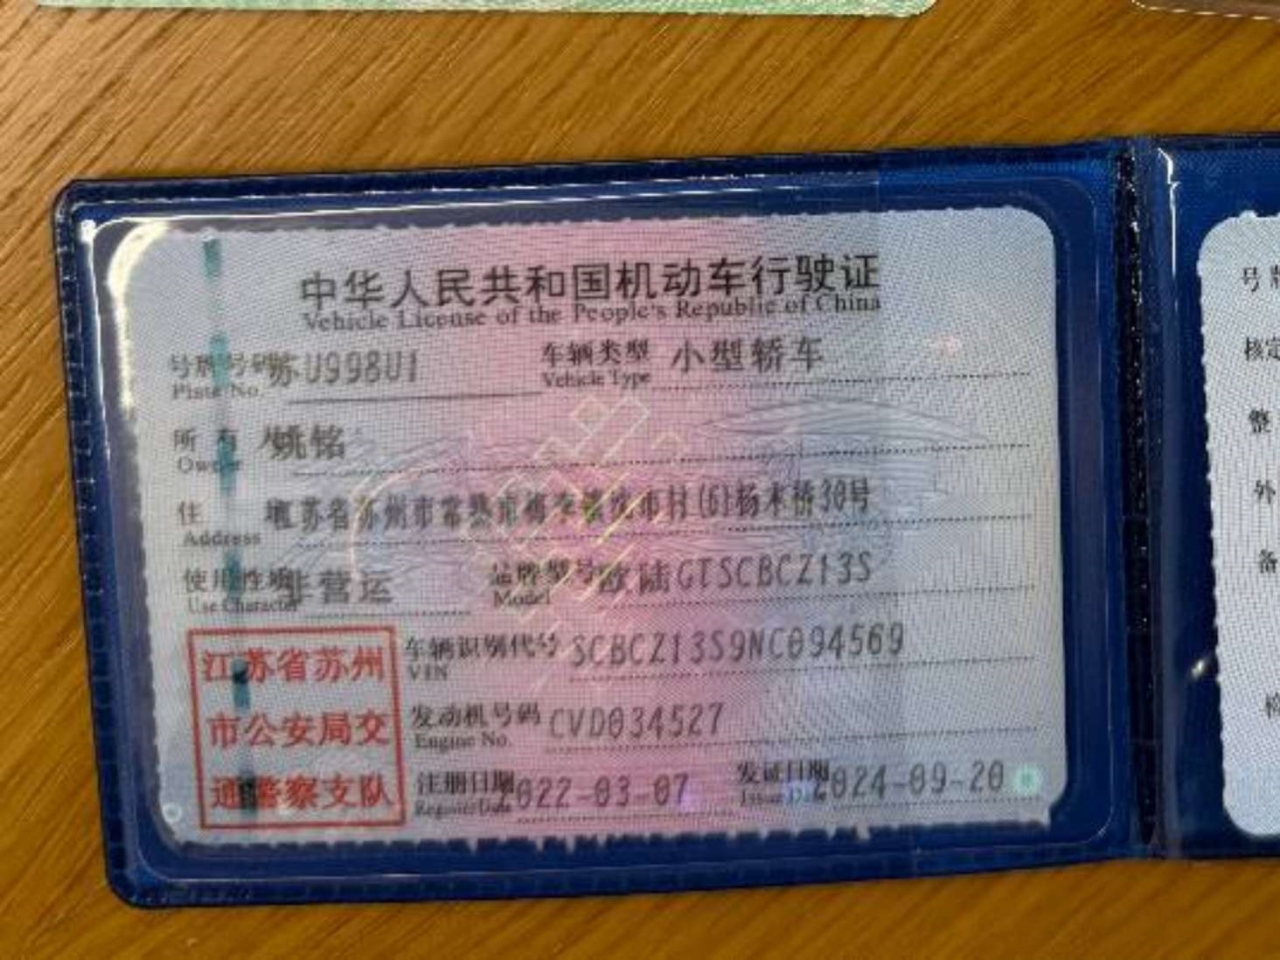 中华人民共和国机动车行驶证
Vehicle License of the People's Republic of China
号牌号码 苏U998U1 车辆类型 小型轿车
Plate No. Vehicle Type
所有人 姚铭
Owner
住 江苏省苏州市常熟市梅李镇沈市村(6)杨木桥30号
Address
使用性质 非营运 品牌型号 欧陆GTSCBCZ13S
Use Character Model
江苏省苏州
市公安局交
通警察支队
车辆识别代号 SCBCZ13S9NC094569
VIN
发动机号码 CVD034527
Engine No.
注册日期 2022-03-07 发证日期 2024-09-20
Register Date Issue Date
号牌
核定
整
外
备